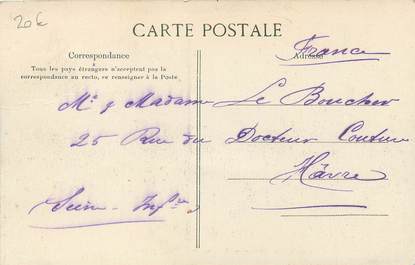 20€
CARTE POSTALE
France
Correspondance
Adresse
Tous les pays étrangers n'acceptent pas la
correspondance au recto, se renseigner à la Poste
Mr & Madame Le Boucher
25 Rue du Docteur Couture
Hâvre
Seine-Infre